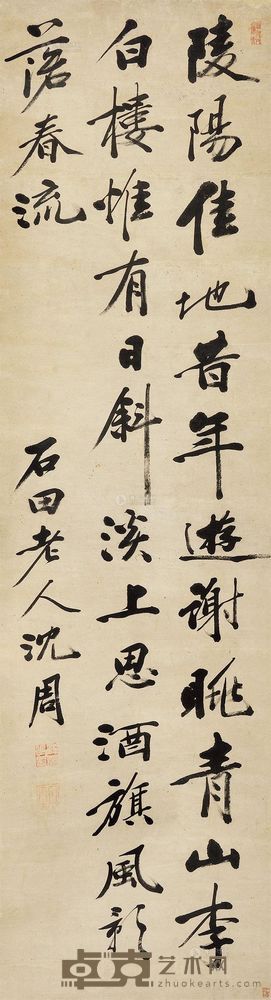 陵陽佳地昔年遊謝眺青山李
白樓惟有日斜溪上思酒旗風影
落春流
石田老人沈周
卓克艺术网
zhuokearts.com